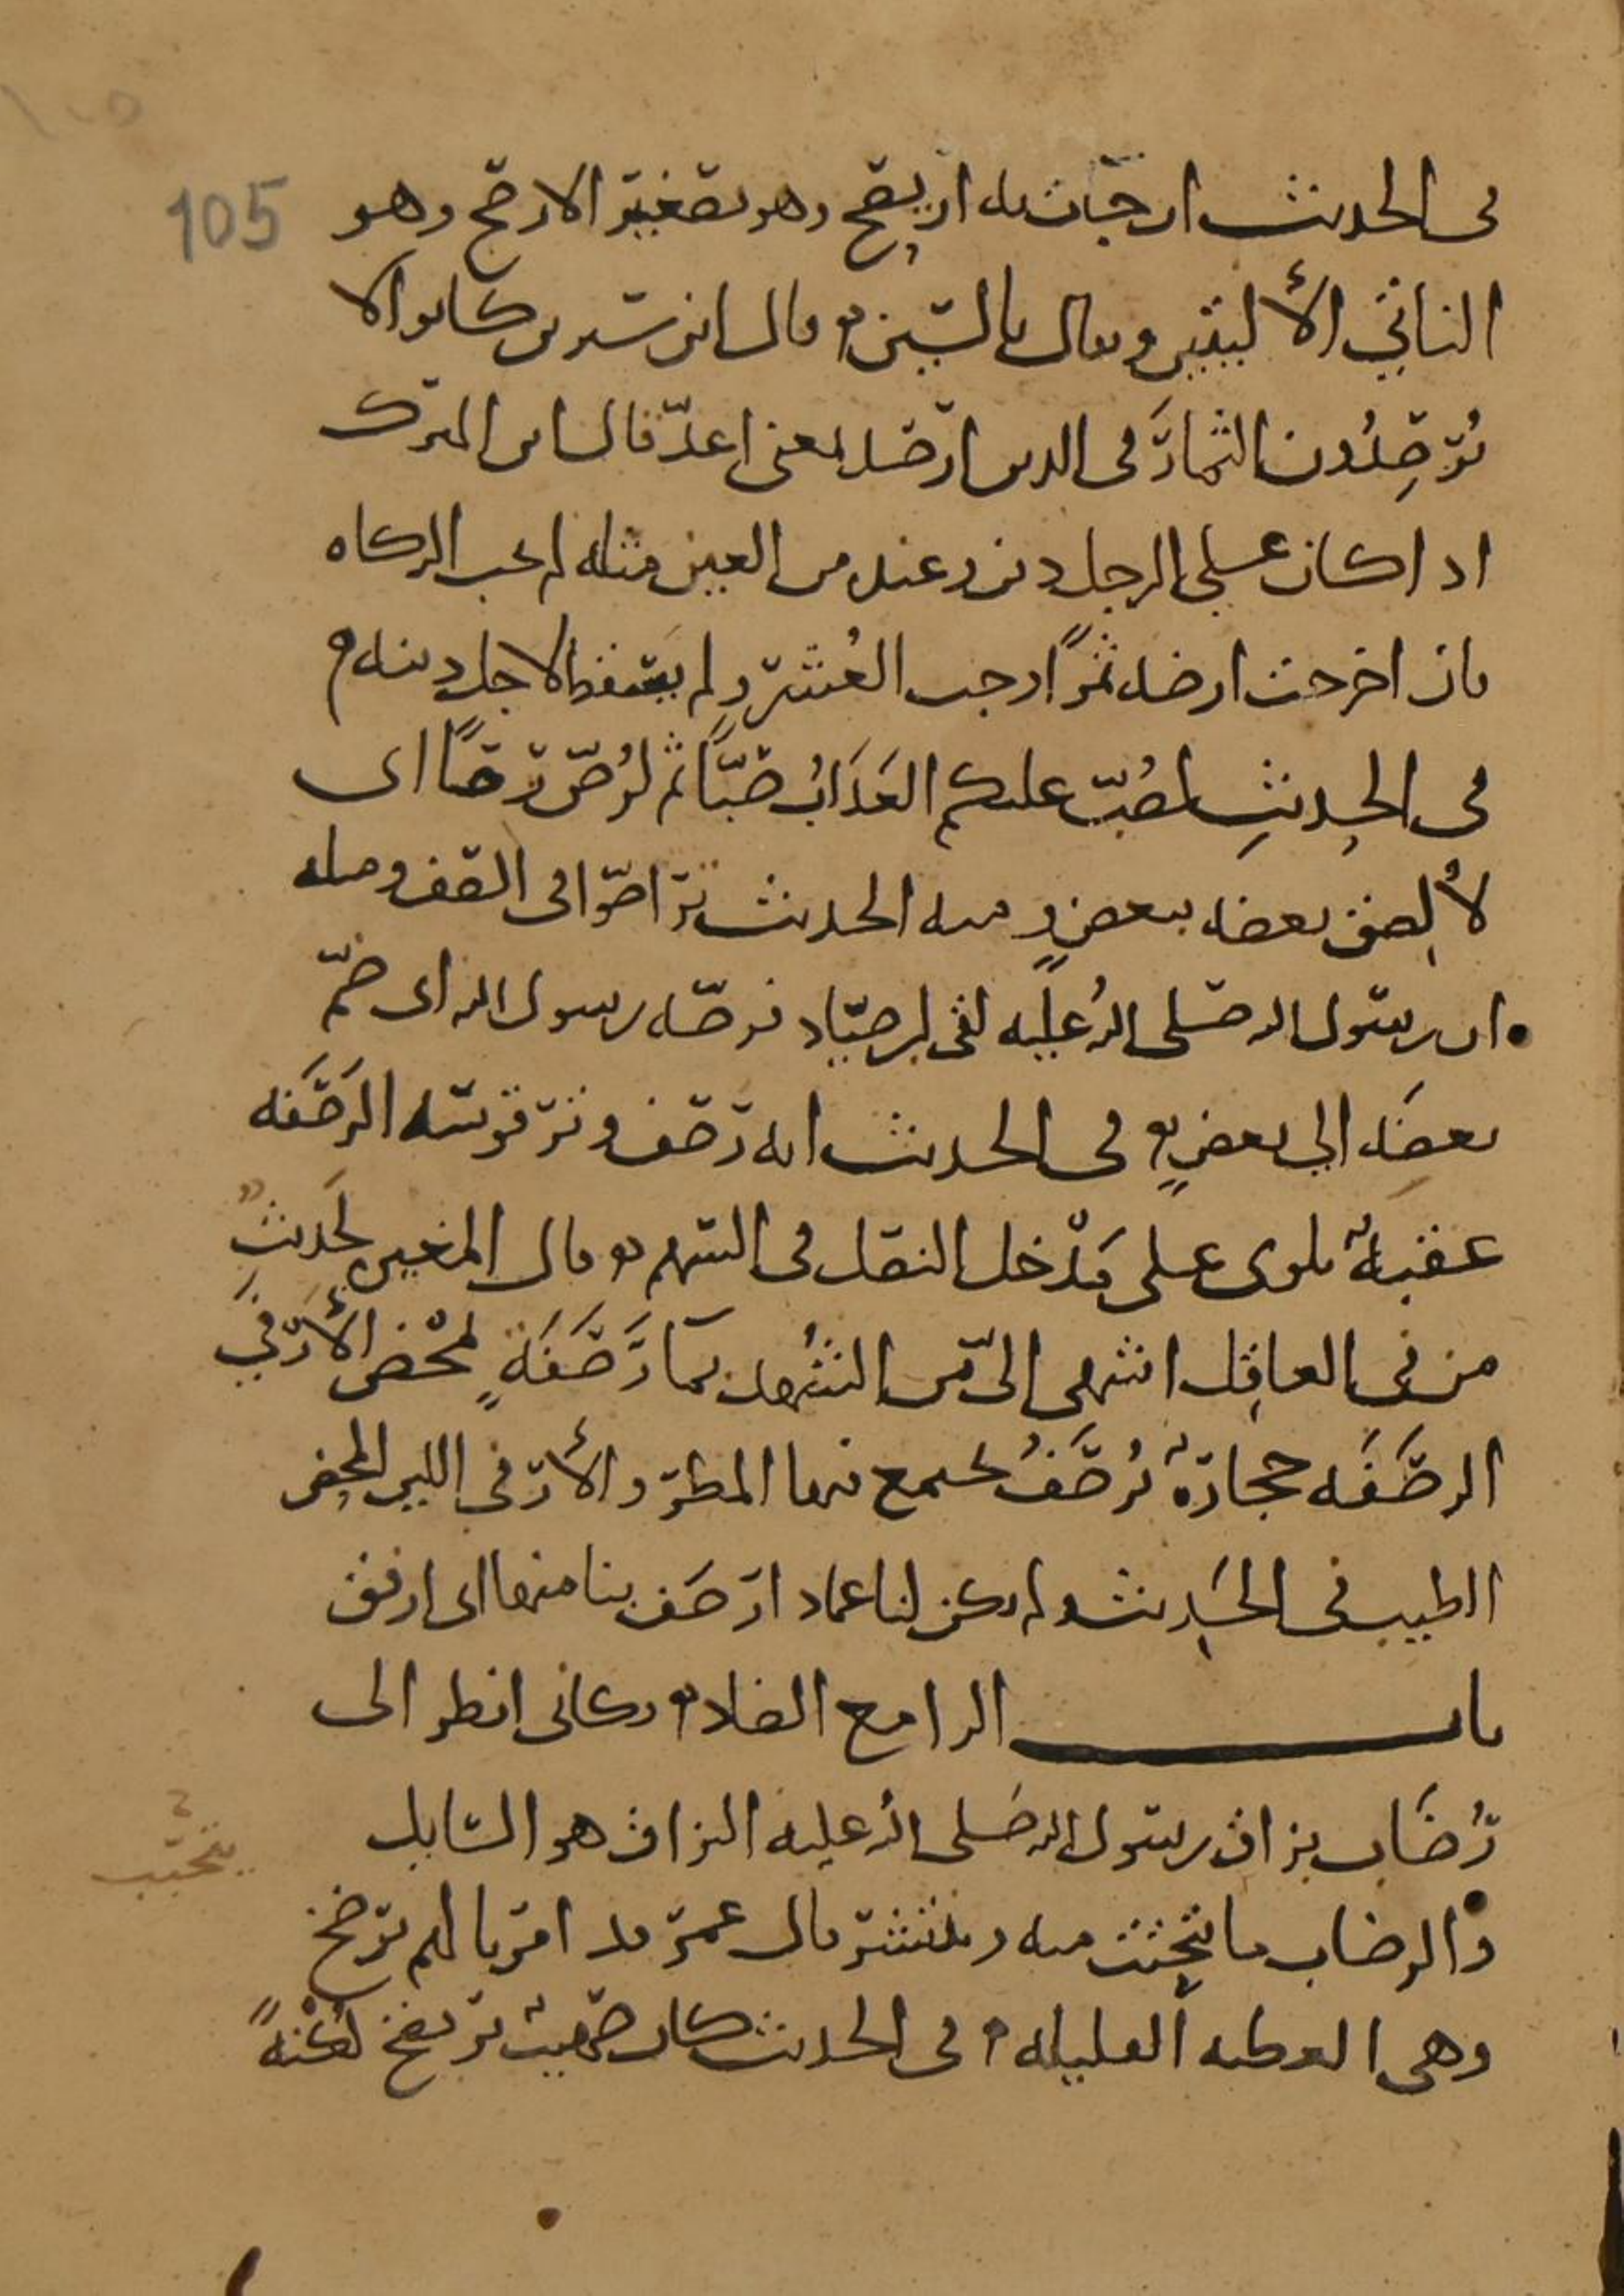 105
في الحديث ان جات به اريصح وهو تصغير الارصح وهو
الناتي الأليتين ويقال بالسين وقال ابن سيرين كانوا لا
يُرصِدُون الثمارَ في الدين ارصد بمعنى اعدّ قال ابن المبرك
اذا كان على الرجل دين وعنده من العين مثله لم تجب الزكاه
فان اخرجت ارضه ثمرًا وجب العُشر ولم يسقط لاجل دينه
في الحديث لصُبّ عليكم العَذَابُ صبًّا ثم لرُصّ رصًّا اى
لأُلصق بعضه ببعضٍ ومنه الحديث تراصّوا في الصف ومنه
ان رسول الله صلى الله عليه لقى ابن صيّاد فرصّه رسول الله اى ضمّ
بعضَه الى بعضٍ في الحديث انه رصف وتر قوسه الرَصَفَه
عقبةٌ تلوى على مَدْخل النصل في السهم وقال المغيره لحَديثٌ
من في العاقِل اشهى الىّ من الشُهد بمآ رَصَفَةٍ لمحْض الأُرْفيِّ
الرصَفَه حجارةٌ تُرصَفُ يجتمع فيها المطر والأرفي اللبن المحض
الطيب في الحَديث ولم يكن لنا عماد ارصَف بنا منها اى ارفق
باب الرا مع الضاد وكاني انظر الى
رُضَاب بزاق رسول الله صَلى الله عليه البزاق هو السايل
والرضاب ما تحثث منه وينتشر قال عمر قد امرنا لهم برضخ
يتحبّب
وهي العطيه القليله في الحديث كان صهيبٌ يرتضخ لُكْنةً